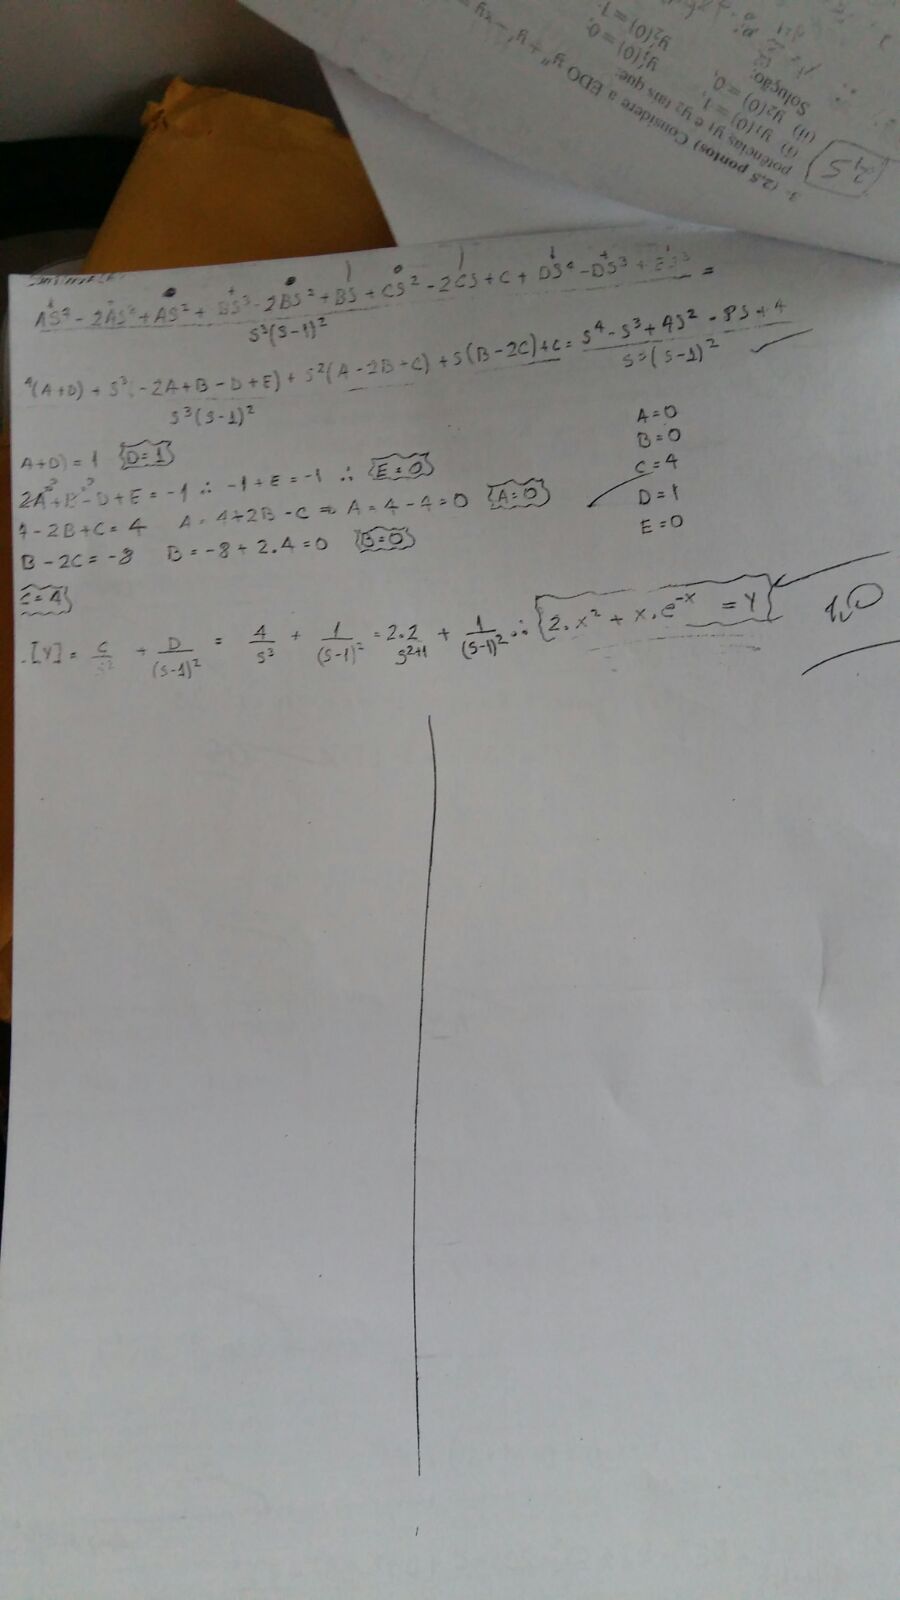 3- (2,5 pontos) Considere a EDO y'' + y' - xy =
potências, y₁ e y₂ tais que:
(i) y₁(0) = 1, y₁'(0) = 0,
(ii) y₂(0) = 0, y₂'(0) = 1.
Solução:
2,5
AS⁴ - 2AS³ + AS² + BS³ - 2BS² + BS + CS² - 2CS + C + DS⁴ - DS³ + ES³ =
S³(S-1)²
⁴(A+D) + S³(-2A+B-D+E) + S²(A-2B+C) + S(B-2C)+C = S⁴ - S³ + 4S² - 8S + 4
S³(S-1)² S³(S-1)²
A+D = 1 D=1
2A + B - D + E = -1 ∴ -1 + E = -1 ∴ E=0
A - 2B + C = 4 A = 4 + 2B - C ⇒ A = 4 - 4 = 0 A=0
B - 2C = -8 B = -8 + 2.4 = 0 B=0
C=4
A=0
B=0
C=4
D=1
E=0
[Y] = C/S³ + D/(S-1)² = 4/S³ + 1/(S-1)² = 2.2/S²⁺¹ + 1/(S-1)² ∴ 2.x² + x.e⁻ˣ = Y
1,0